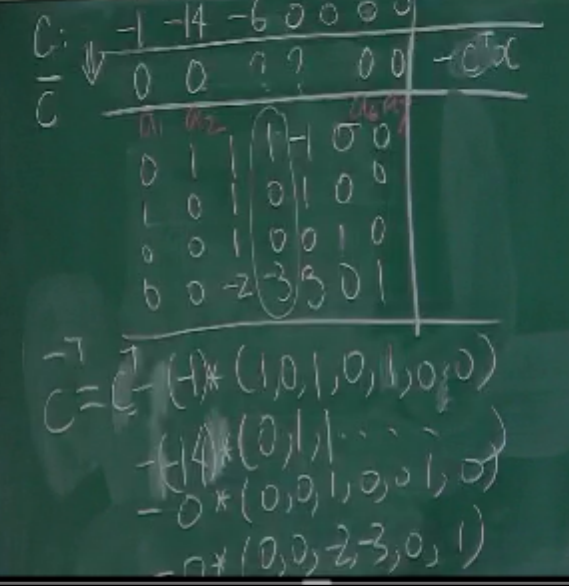 C: -1 -14 -6 0 0 0 0
C̄ 0 0 ? ? 0 0 -cᵀx
a₁ a₂ a₆ a₇
0 1 1 1 -1 0 0
1 0 1 0 1 0 0
0 0 1 0 0 1 0
0 0 -2 -3 3 0 1
C̄ᵀ = Cᵀ - (-1) * (1,0,1,0,1,0,0)
-(-14) * (0,1,1 . . . . )
- 0 * (0,0,1,0,0,1,0)
- 0 * (0,0,-2,-3,0,1)